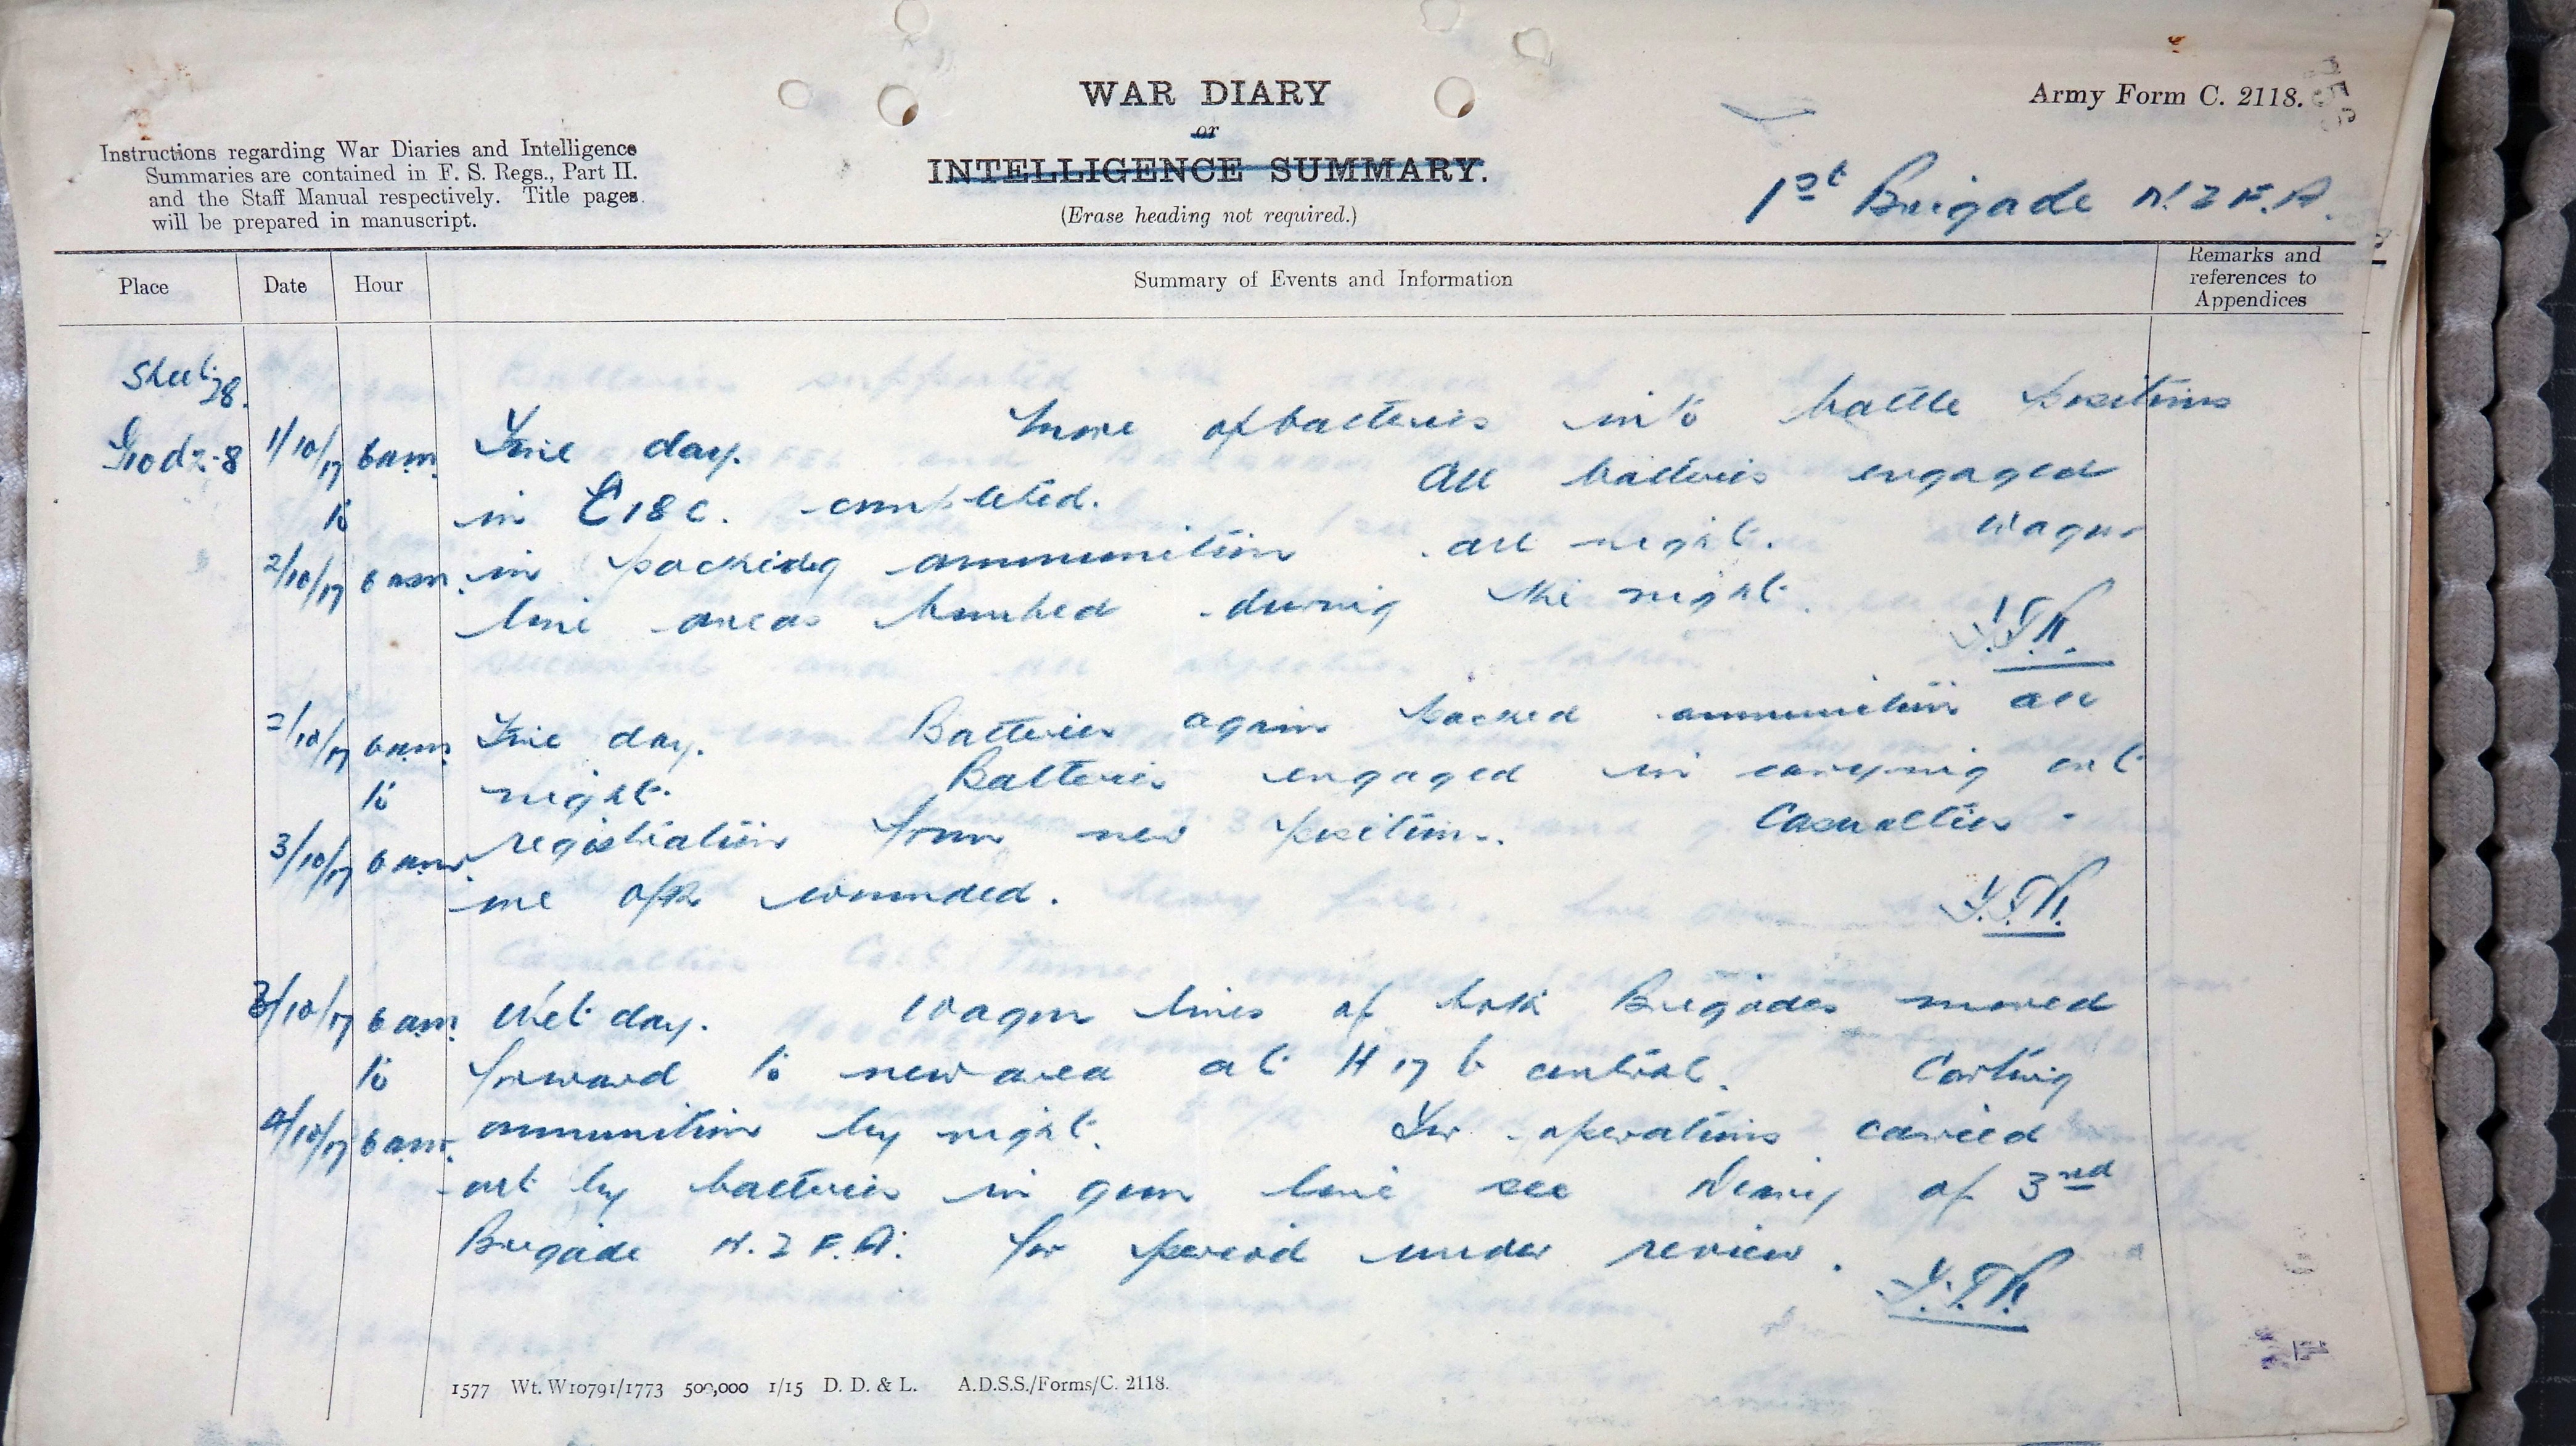 WAR DIARY
or
INTELLIGENCE SUMMARY.
(Erase heading not required.)
Army Form C. 2118.
Instructions regarding War Diaries and Intelligence
Summaries are contained in F. S. Regs., Part II.
and the Staff Manual respectively. Title pages
will be prepared in manuscript.
1st Brigade N.Z.F.A.
Place Date Hour Summary of Events and Information Remarks and references to Appendices
Sheet 28.
G10d2.8 1/10/17 6am Fine day. Move of batteries into battle positions
to in C18c. completed. All batteries engaged
2/10/17 6am. in packing ammunition all night. Wagon
line areas bombed during the night.
2/10/17 6am Fine day. Batteries again packed ammunition all
to night. Batteries engaged in carrying out
3/10/17 6am. registration from new position. Casualties -
one o/r wounded.
3/10/17 6am Wet day. Wagon lines of both Brigades moved
to forward to new area at H17b central. Carting
4/10/17 6am. ammunition by night. For operations carried
out by batteries in gun line see Diary of 3rd
Brigade N.Z.F.A. for period under review.
1577 Wt. W10791/1773 500,000 1/15 D. D. & L. A.D.S.S./Forms/C. 2118.